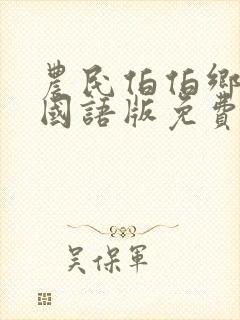 農民伯伯鄉
國語版免費
吳保軍